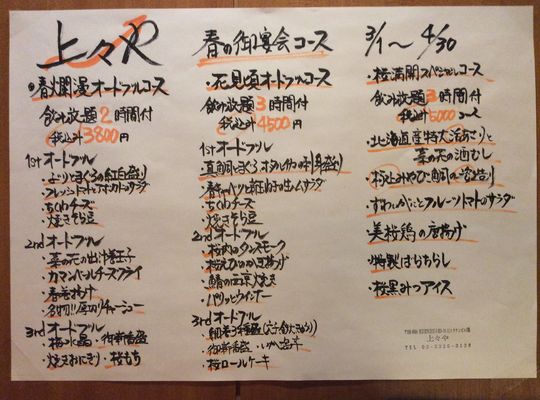 上々や
春の御宴会コース
3/1〜4/30
春爛漫オードブルコース
飲み放題2時間付
税込み3800円
1stオードブル
・まぐろの紅白盛り
・フレッシュトマトとアボカドのサラダ
・ちくわチーズ
・焼きそら豆
2ndオードブル
・菜の花の出汁巻玉子
・カマンベールチーズフライ
・春巻揚げ
・名物!!厚切りチャーシュー
3rdオードブル
・梅水晶・御新香盛
・焼きおにぎり・桜もち
・花見頃オードブルコース
飲み放題3時間付
税込み4500円
1stオードブル
・春キャベツと桜海老の生ハムサラダ
・ちくわチーズ
・焼きそら豆
2ndオードブル
・桜肉のタンスモーク
・桜えびのかき揚げ
・鯖の西京焼き
・パリッとウインナー
3rdオードブル
・細巻3種盛
・御新香盛・いか塩辛
・桜ロールケーキ
・桜満開スペシャルコース
飲み放題3時間付
税込5000円
・北海道産特大活あさりと
菜の花の酒むし
・ずわいがにとフルーツトマトのサラダ
・美桜鶏の唐揚げ
・特製ばらちらし
・桜黒みつアイス
上々や